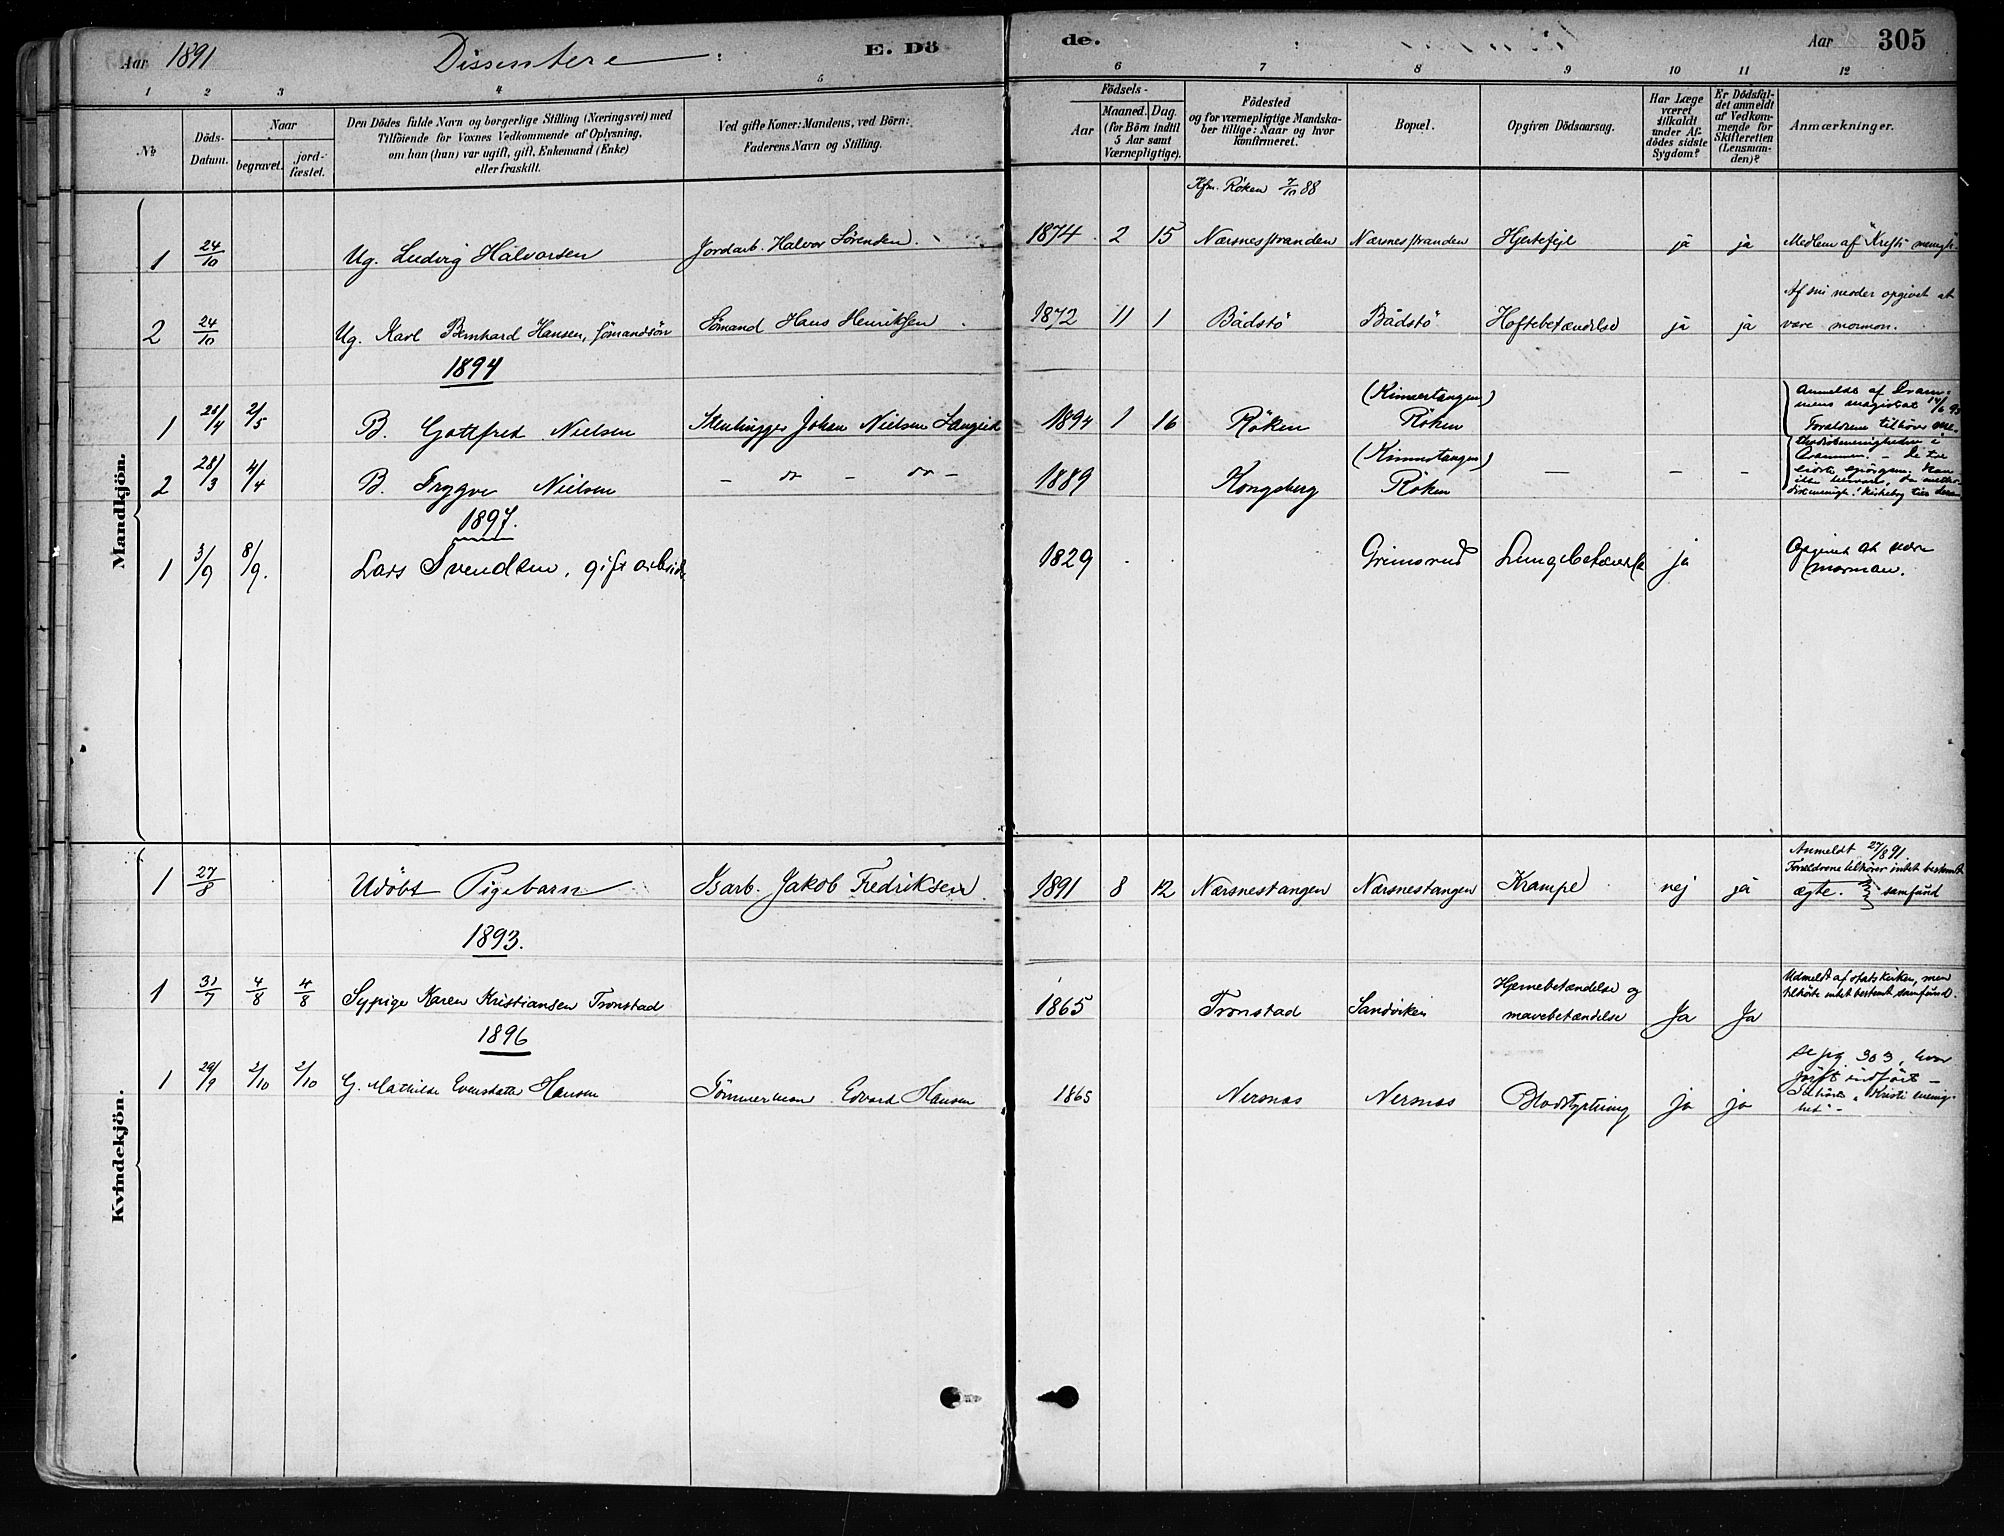 Aar 1891 Dissentere E. Dö de. Aar 305
1 2 3 4 5 6 7 8 9 10 11 12
№
Döds-Datum.
Naar
begravet. jord-fæstet.
Den Dödes fulde Navn og borgerlige Stilling (Næringsvei) med
Tilföiende for Voxnes Vedkommende af Oplysning,
om han (hun) var ugift, gift, Enkemand (Enke)
eller fraskilt.
Ved gifte Koner: Mandens, ved Börn:
Faderens Navn og Stilling.
Födsels-
Aar Maaned. Dag.
(for Börn indtil
5 Aar samt
Værnepligtige).
Födested
og for værnepligtige Mandska-
ber tillige: Naar og hvor
konfirmeret.
Bopæl.
Opgiven Dödsaarsag.
Har Læge
været
tilkaldt
under Af-
dödes sidste
Sygdom?
Er Dödsfal-
det anmeldt
af Vedkom-
mende for
Skifteretten
(Lensman-
den)?
Anmærkninger.
Mandkjön.
Kfm. Röken 7/10 88
1 24/10 Ug. Ludvig Halvorsen Jordarb. Halvor Sörensen. 1874 2 15 Nærsnesstranden Nærsnesstranden Hjertefejl ja ja Medlem af "Kristi menigh."
2 24/10 Ug. Karl Bernhard Hansen, sömandsön Sömand Hans Henriksen 1872 11 1 Bådstö Bådstö Hoftebetændelse ja ja Af sin moder opgivet at
være mormon.
1894
1 28/4 2/5 B. Gottfred Nielsen Stenhugger Johan Nielsen 1894 1 16 Röken (Kinnertangen) Röken Anmeldt af Dram-
mens magistrat
Forældrene tilhörer
2 28/3 4/4 B. Trygve Nielsen – do – do – 1889 Kongsberg (Kinnertangen) Röken – – –
Drammen. – De tre
1897.
1 3/9 8/9. Lars Svendsen, gift arbeider 1829 Grimsrud Lungebetændelse ja Opgivet at være
mormon.
Kvindekjön.
1 27/8 Udöbt Pigebarn Isarb. Jakob Fredriksen 1891 8 12 Nærsnestangen Nærsnestangen Krampe nej ja Anmeldt 27/8 91.
Forældrene tilhörer intet bestemt
ægte. samfund
1893.
1 31/7 4/8 4/8 Sypige Karen Kristiansen Tronstad 1865 Tronstad Sandviken Hjernebetændelse og
mavebetændelse Ja Ja Udmeldt af statskirken, men
tilhörte intet bestemt samfund.
1896
1 29/9 2/10 2/10 G. Mathilde Evensdatter Hansen Tömmerman Edvard Hansen 1865 Nersnas Nersnas Blodstyrtning ja ja Se pg 303, hvor
indfört –
Tilhörte "Kristi menig-
hed" –